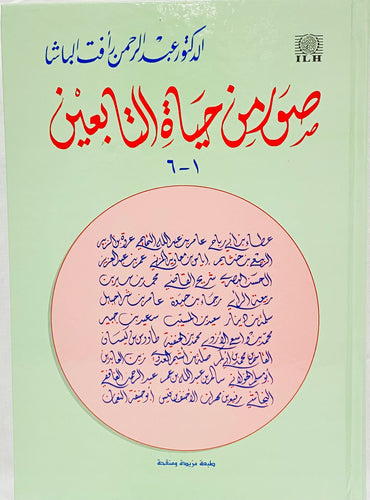 الدكتور عبد الرحمن رأفت الباشا
ILH
صور من حياة التابعين
١-٦
عطاء بن أبي رباح عامر بن عبد الله التميمي عروة بن الزبير
الربيع بن خثيم إياس بن معاوية المزني عمر بن عبد العزيز
الحسن البصري شريح القاضي محمد بن سيرين
ربيعة الرأي رجاء بن حيوة عامر بن شراحبيل
سلمة بن دينار سعيد بن المسيب سعيد بن جبير
محمد بن واسع الأزدي محمد بن الحنفية طاووس بن كيسان
القاسم بن محمد بن أبي بكر صلة بن أشيم العدوي زين العابدين
أبو مسلم الخولاني سالم بن عبد الله بن عمر عبد الرحمن الغافقي
النجاشي رفيع بن مهران الأحنف بن قيس أبو حنيفة النعمان
طبعة مزيدة ومنقحة